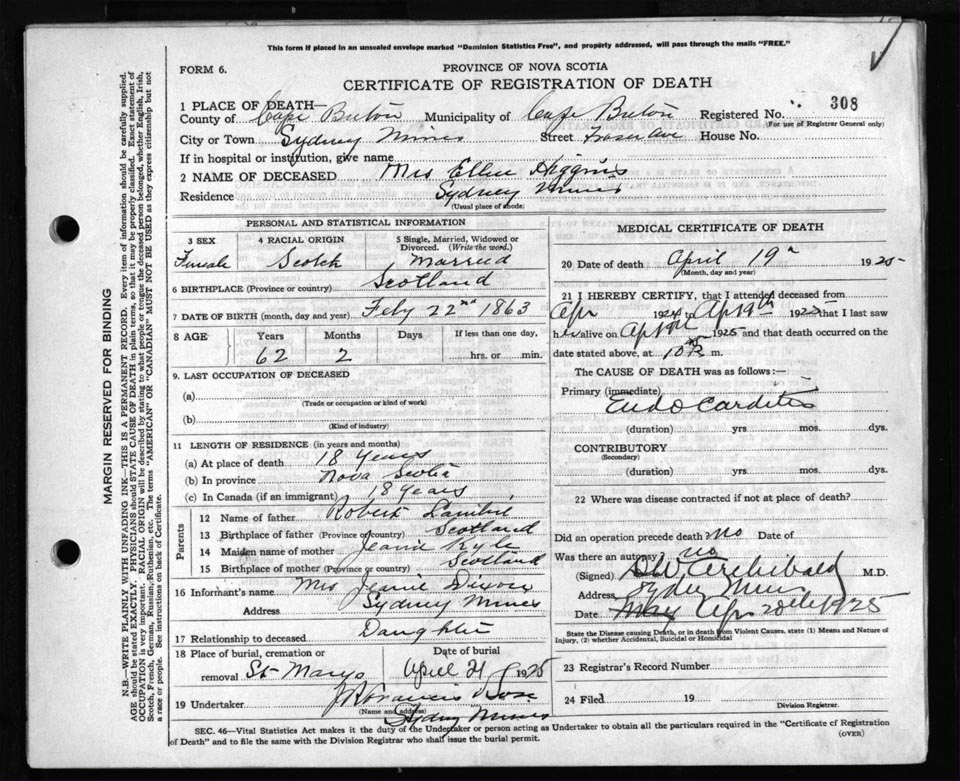 This form if placed in an unsealed envelope marked "Dominion Statistics Free", and properly addressed, will pass through the mails "FREE."
FORM 6.
PROVINCE OF NOVA SCOTIA
CERTIFICATE OF REGISTRATION OF DEATH
1 PLACE OF DEATH—
County of Cape Breton Municipality of Cape Breton Registered No. 308
(For use of Registrar General only)
City or Town Sydney Mines Street Fraser Ave House No.
If in hospital or institution, give name
2 NAME OF DECEASED Mrs Ellen Higgins
Residence Sydney Mines
(Usual place of abode)
PERSONAL AND STATISTICAL INFORMATION
3 SEX 4 RACIAL ORIGIN 5 Single, Married, Widowed or Divorced. (Write the word.)
Female Scotch Married
6 BIRTHPLACE (Province or country) Scotland
7 DATE OF BIRTH (month, day and year) Feby 22nd 1863
8 AGE Years Months Days If less than one day,
62 2 hrs. or min.
9. LAST OCCUPATION OF DECEASED
(a)
(Trade or occupation or kind of work)
(b)
(Kind of industry)
11 LENGTH OF RESIDENCE (in years and months)
(a) At place of death 18 years
(b) In province Nova Scotia
(c) In Canada (if an immigrant) 18 years
Parents
12 Name of father Robert Lambie
13 Birthplace of father (Province or country) Scotland
14 Maiden name of mother Jeanie Kyle
15 Birthplace of mother (Province or country) Scotland
16 Informant's name Mrs Jeanie Dixon
Address Sydney Mines
17 Relationship to deceased Daughter
18 Place of burial, cremation or removal St Marys Date of burial April 21 1925
19 Undertaker Francis
(Name and address)
Sydney Mines
MEDICAL CERTIFICATE OF DEATH
20 Date of death April 19 1925
(Month, day and year)
21 I HEREBY CERTIFY, that I attended deceased from
Apr 192 to Apr 19th 1925 that I last saw
her alive on Apr 1925 and that death occurred on
date stated above, at 10 m.
The CAUSE OF DEATH was as follows:—
Primary (immediate) Endo Carditis
(duration) yrs. mos. dys.
CONTRIBUTORY
(Secondary)
(duration) yrs. mos. dys.
22 Where was disease contracted if not at place of death?
Did an operation precede death? no Date of
Was there an autopsy? no
(Signed) D W Archibald M.D.
Address Sydney Mines
Date May Apr 20th 1925
State the Disease causing Death, or in death from Violent Causes, state (1) Means and Nature of
Injury, (2) whether Accidental, Suicidal or Homicidal
23 Registrar's Record Number
24 Filed 19
Division Registrar.
SEC. 46—Vital Statistics Act makes it the duty of the Undertaker or person acting as Undertaker to obtain all the particulars required in the "Certificate of Registration
of Death" and to file the same with the Division Registrar who shall issue the burial permit. (OVER)
MARGIN RESERVED FOR BINDING
N.B.—WRITE PLAINLY WITH UNFADING INK—THIS IS A PERMANENT RECORD. Every item of information should be carefully supplied.
AGE should be stated EXACTLY. PHYSICIANS should STATE CAUSE OF DEATH in plain terms, so that it may be properly classified. Exact statement of
OCCUPATION is very important. RACIAL ORIGIN will be described by stating to what people or tongue the deceased person belonged, whether English, Irish,
Scotch, French, German, Russian, Ruthenian, etc. The terms "AMERICAN" OR "CANADIAN" MUST NOT BE USED as they express citizenship but not
a race or people. See instructions on back of Certificate.